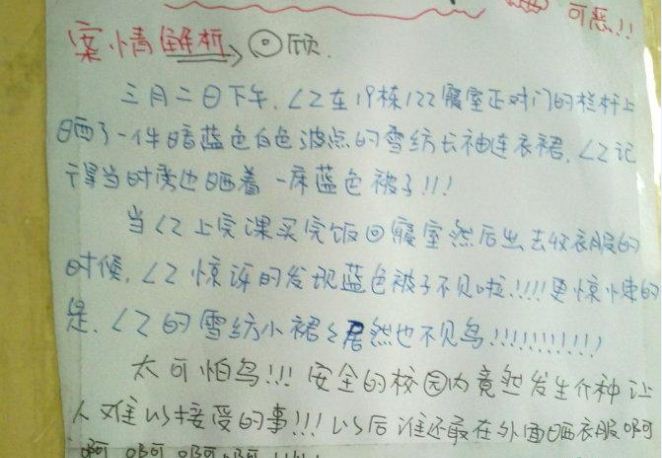 可恶!!
案情解析→回顾.
三月二日下午,LZ在19栋122寝室正对门的栏杆上
晒了一件暗蓝色白色波点的雪纺长袖连衣裙,LZ记
得当时旁边晒着一床蓝色被子!!!
当LZ上完课买完饭回寝室然后出去收衣服的
时候,LZ惊讶的发现蓝色被子不见啦!!!!更惊悚的
是,LZ的雪纺小裙子居然也不见鸟!!!!!!!!!!!
太可怕鸟!!!安全的校园内竟然发生介种让
人难以接受的事!!!以后谁还敢在外面晒衣服啊
啊啊啊啊!!!!